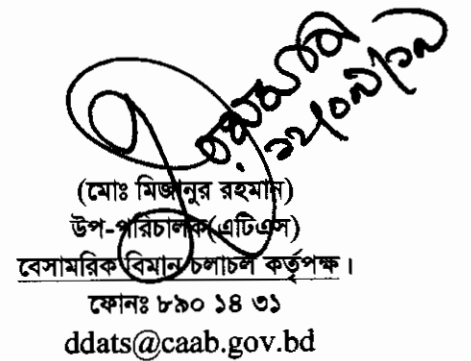 ১২/০৯/১৯
(মোঃ মিজানুর রহমান)
উপ-পরিচালক(এটিএস)
বেসামরিক বিমান চলাচল কর্তৃপক্ষ।
ফোনঃ ৮৯০ ১৪ ৩১
ddats@caab.gov.bd